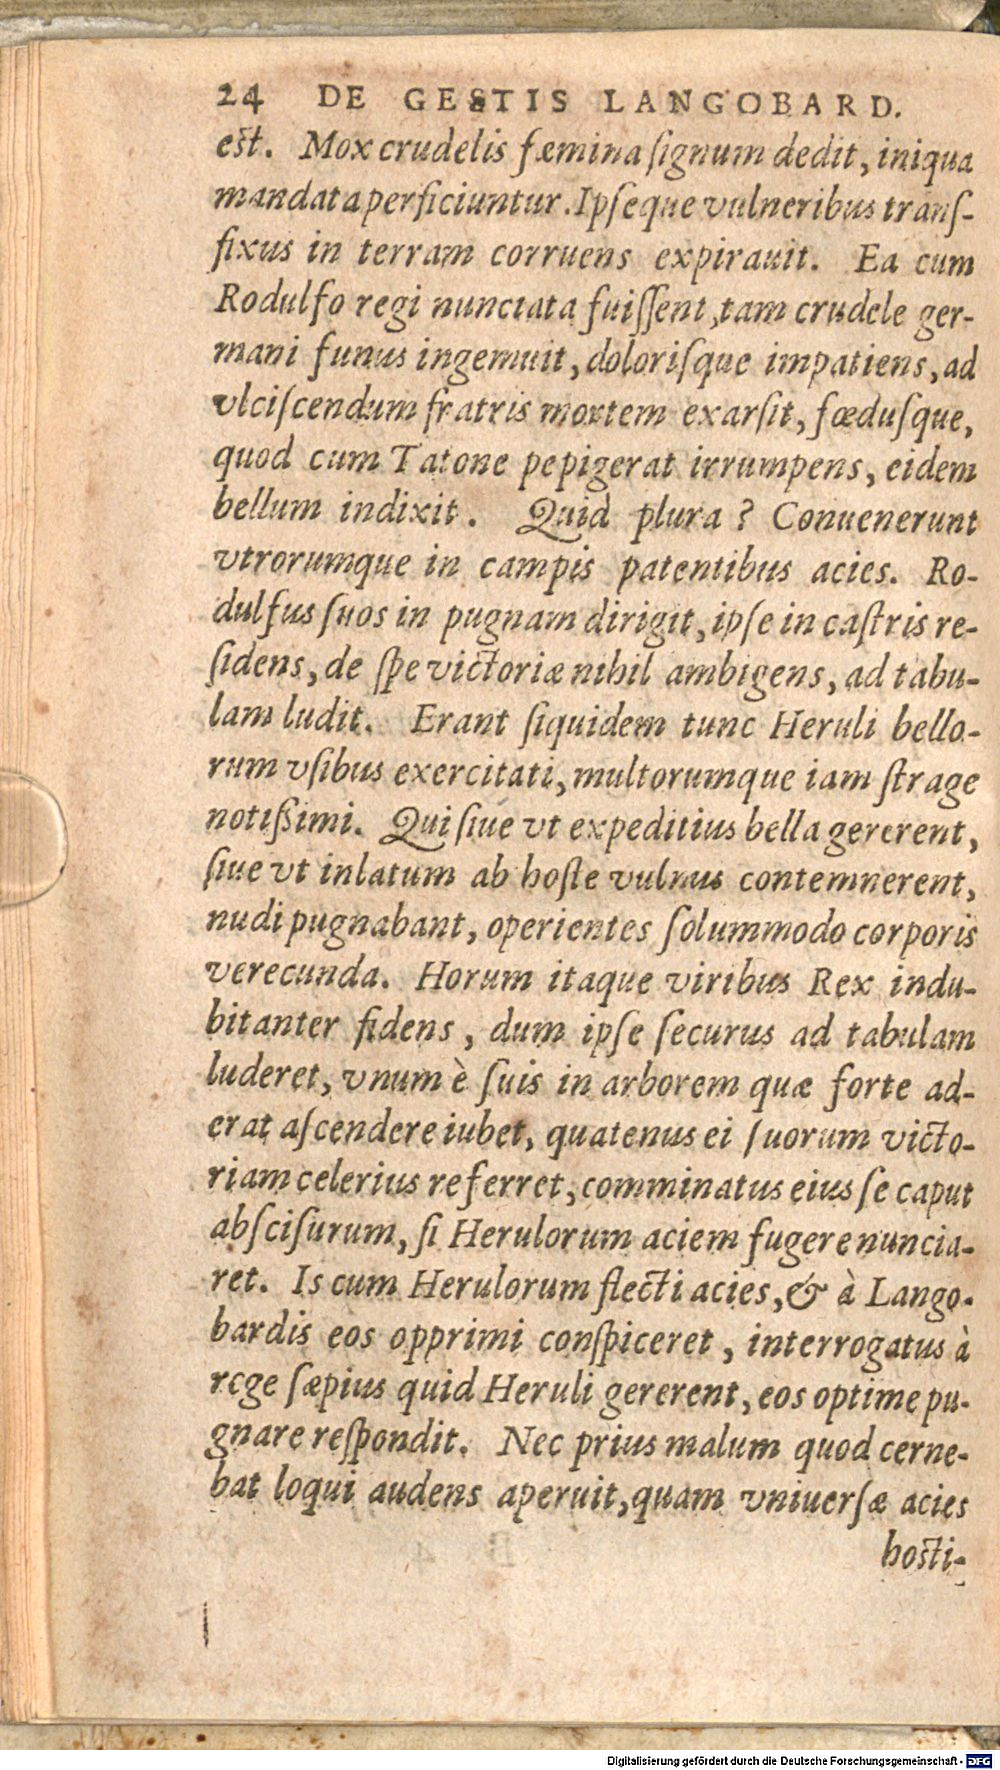 24 DE GESTIS LANGOBARD.
est. Mox crudelis fæmina ſignum dedit, iniqua
mandata perficiuntur. Ipſeque vulneribus tranſ-
fixus in terram corruens expirauit. Ea cum
Rodulfo regi nunctata fuiſſent, tam crudele ger-
mani funus ingemuit, doloriſque impatiens, ad
vlciſcendum fratris mortem exarſit, fœduſque,
quod cum Tatone pepigerat irrumpens, eidem
bellum indixit. Quid plura? Conuenerunt
vtrorumque in campis patentibus acies. Ro-
dulfus ſuos in pugnam dirigit, ipſe in caſtris re-
ſidens, de ſpe victoriæ nihil ambigens, ad tabu-
lam ludit. Erant ſiquidem tunc Heruli bello-
rum vſibus exercitati, multorumque iam ſtrage
notißimi. Qui ſiue vt expeditius bella gererent,
ſiue vt inlatum ab hoſte vulnus contemnerent,
nudi pugnabant, operientes ſolummodo corporis
verecunda. Horum itaque viribus Rex indu-
bitanter fidens, dum ipſe ſecurus ad tabulam
luderet, vnum è ſuis in arborem quæ forte ad-
erat aſcendere iubet, quatenus ei ſuorum victo-
riam celerius referret, comminatus eius ſe caput
abſciſurum, ſi Herulorum aciem fugere nuncia-
ret. Is cum Herulorum flecti acies, & à Lango-
bardis eos opprimi conſpiceret, interrogatus à
rege ſæpius quid Heruli gererent, eos optime pu-
gnare reſpondit. Nec prius malum quod cerne-
bat loqui audens aperuit, quam vniuerſæ acies
hosti-
Digitalisierung gefördert durch die Deutsche Forschungsgemeinschaft - DFG